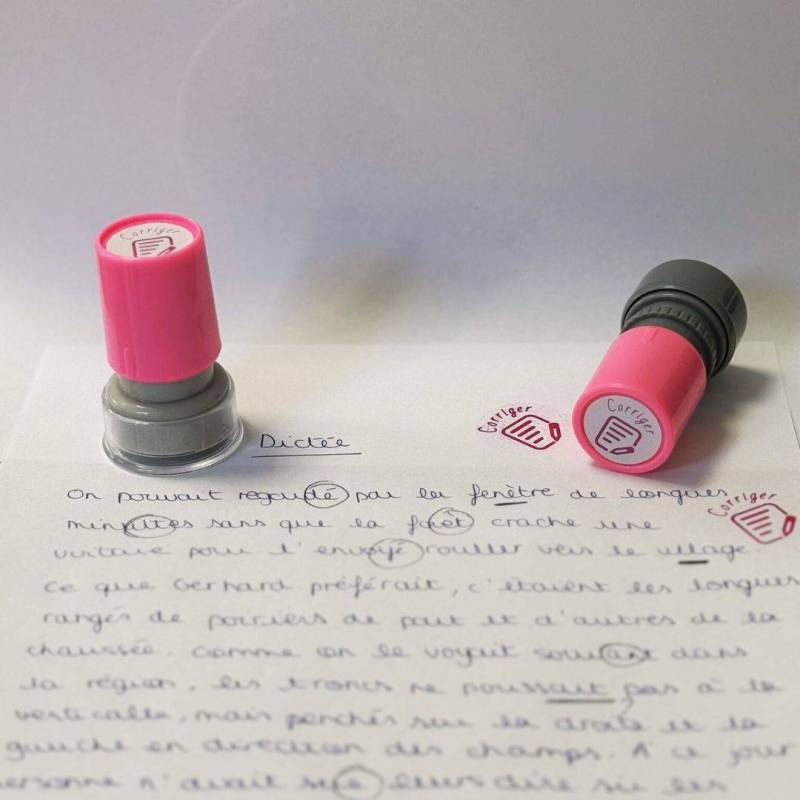 Corriger
Corriger
Dictée
Corriger
On pouvait regardé par la fenêtre de longues
Corriger
minuttes sans que la forêt crache une
voiture pour l'envoyé rouller vers le village.
Ce que Gerhard préférait, c'étaient les longues
rangés de poiriers de part et d'autres de la
chaussée. Comme on le voyait souvant dans
la région, les troncs ne poussait pas à la
verticalle, mais penchés sur la droite et la
gauche en direction des champs. A ce jour
personne n'avait leurs dire si les